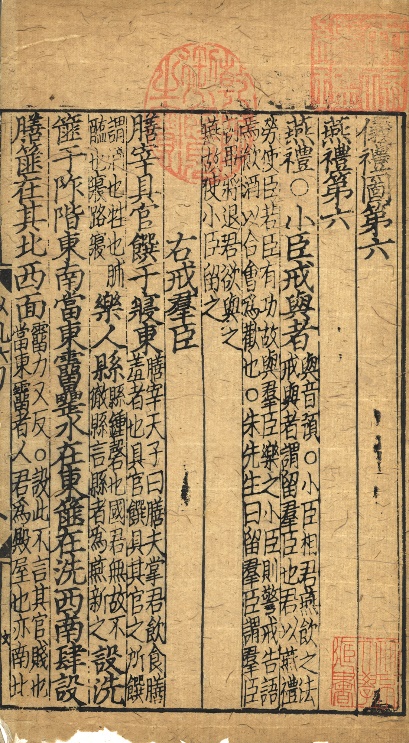 儀禮圖第六
燕禮第六
燕禮○小臣戒與者
與音預○小臣相君燕飲之法
戒與者謂留羣臣也君以燕禮
勞使臣若臣有功故與羣臣樂之小臣則警戒告語
焉飲酒以合會為歡也○朱先生曰留羣臣謂羣臣
將退君欲與之
燕故使小臣留之
右戒羣臣
膳宰具官饌于寢東
膳宰天子曰膳夫掌君飲食膳
羞者也具官饌具其官之所饌
謂酒也牲也脯
醢也寢路寢
樂人縣
縣鍾磬也國君無故不
徹縣言縣者為燕新之
設洗
篚于阼階東南當東霤罍水在東篚在洗西南肆設
膳篚在其北西面
霤力又反○設此不言其官賤也
當東霤者人君為殿屋也亦南北